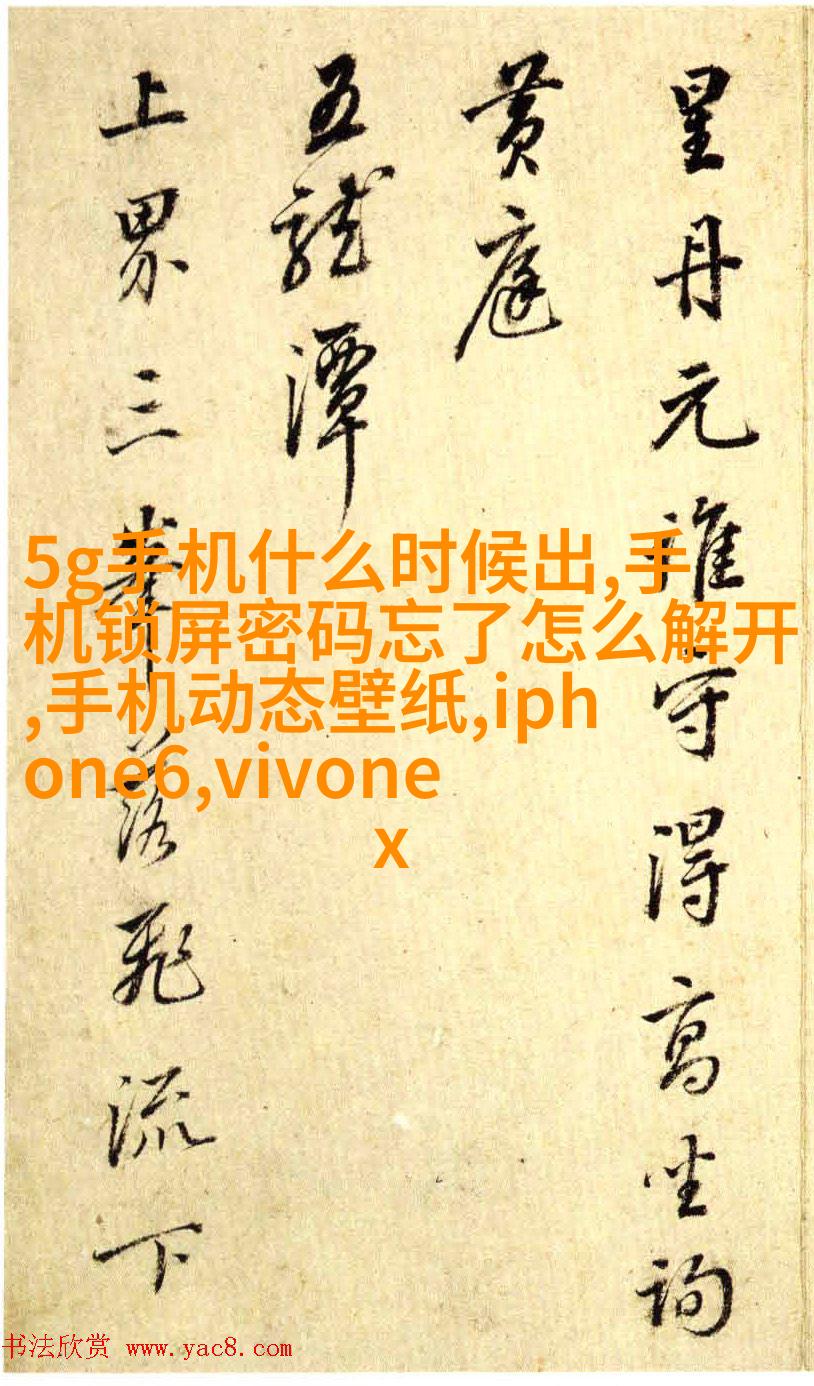 星丹元誰守得高坐詢
黄庭
五龍潭
上界三峯落飛流下
5g手机什么时候出,手
机锁屏密码忘了怎么解开
,手机动态壁纸,iph
one6,vivone
x
书法欣赏 www.yac8.com